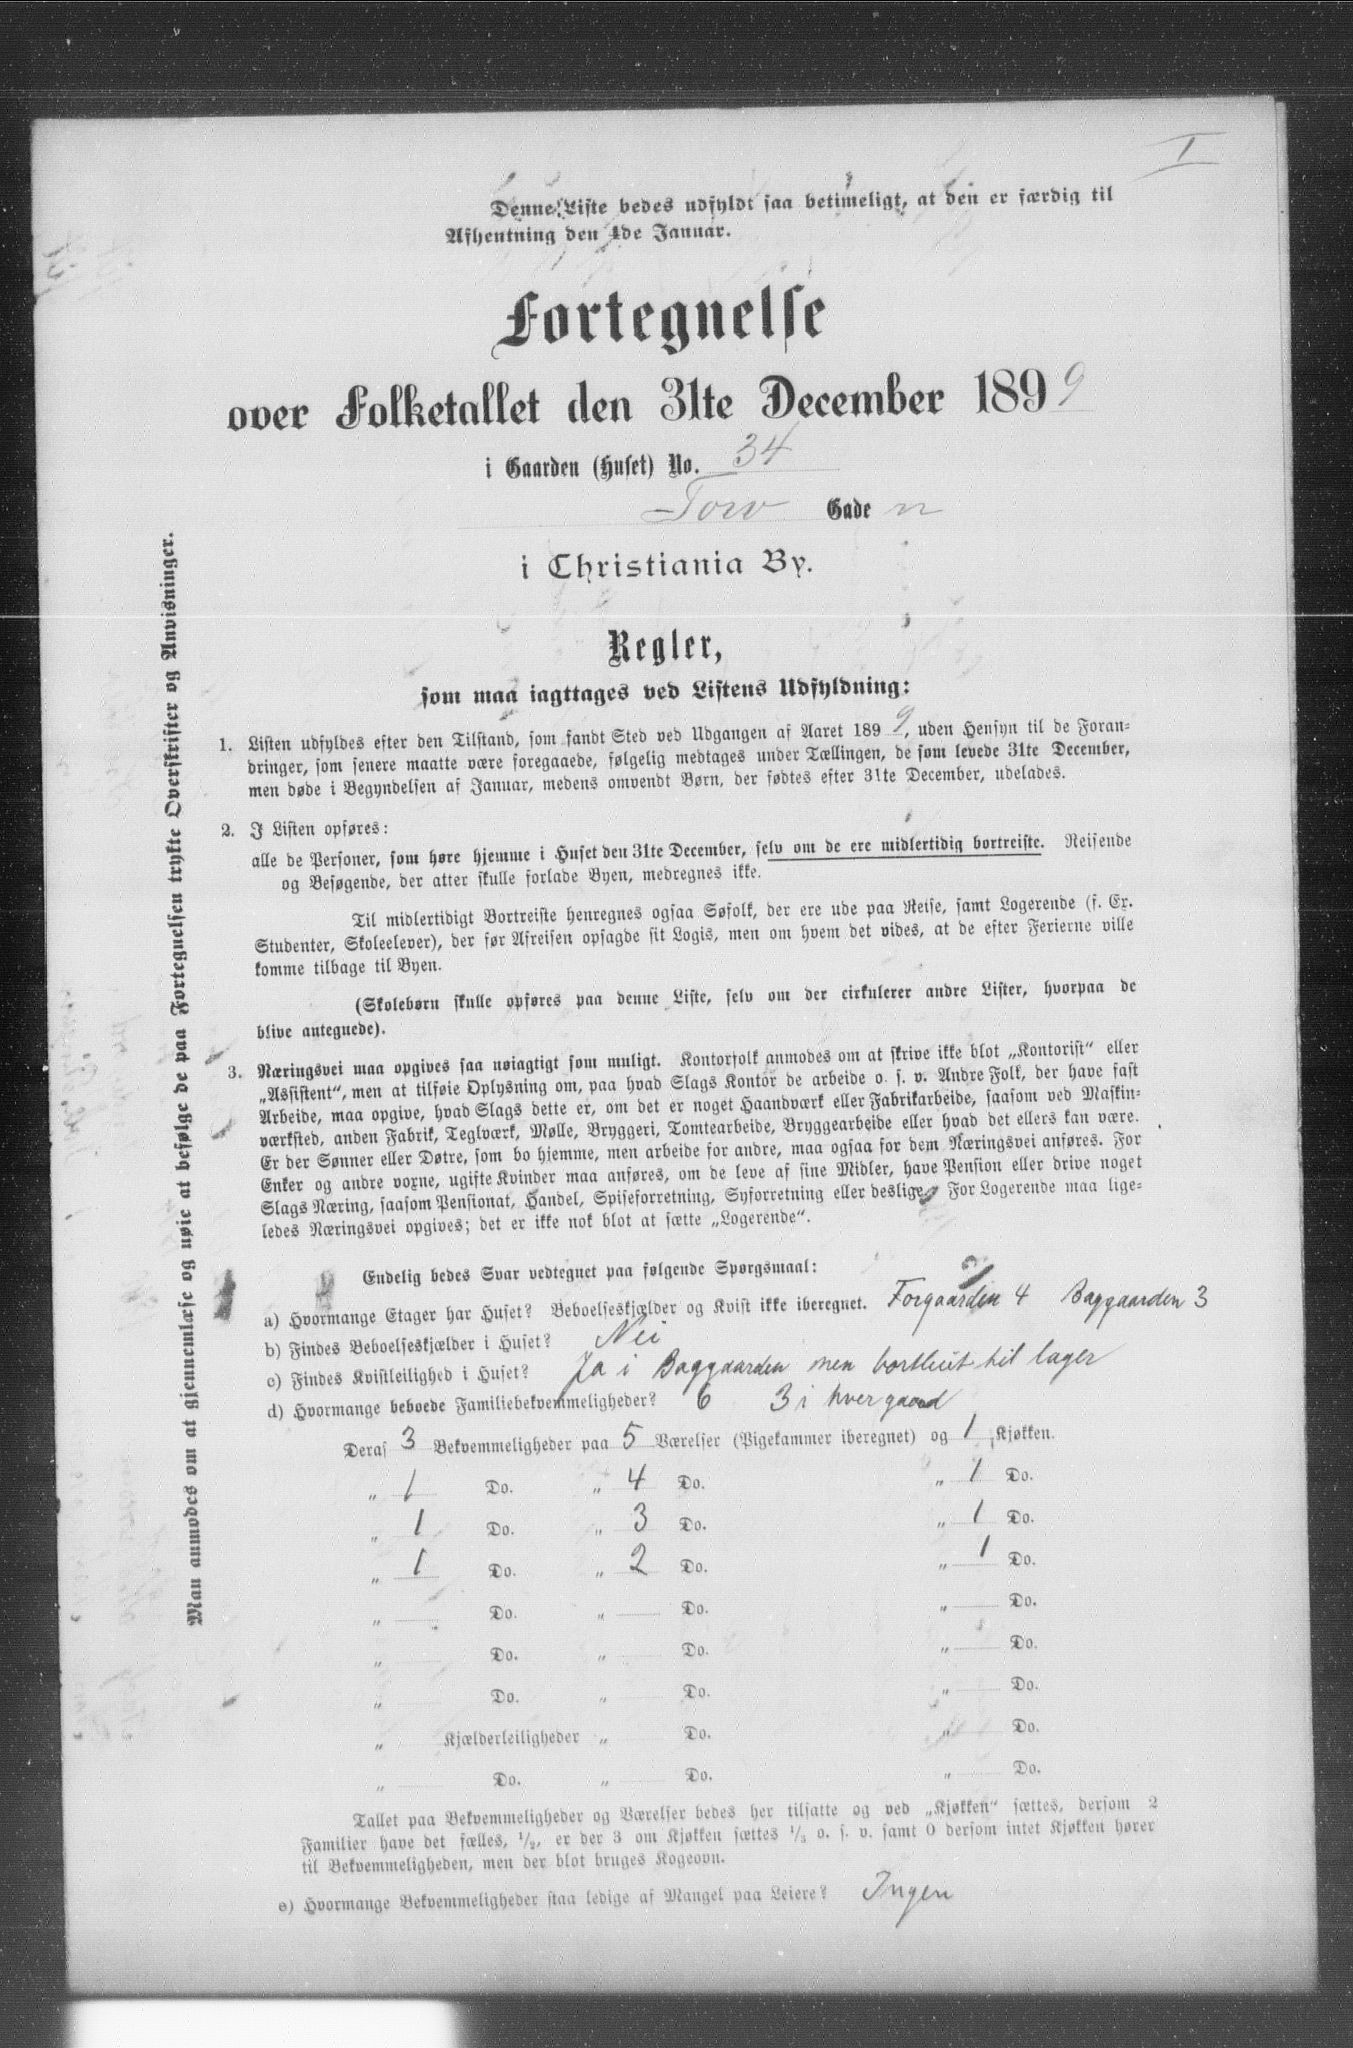 I
Denne Liste bedes udfyldt saa betimeligt, at den er færdig til
Afhentning den 1de Januar.
Fortegnelse
over Folketallet den 31te December 1899
i Gaarden (Huset) No. 34
Torv Gade n
i Christiania By.
Regler,
som maa iagttages ved Listens Udfyldning:
1. Listen udfyldes efter den Tilstand, som fandt Sted ved Udgangen af Aaret 1899, uden Hensyn til de Foran-
dringer, som senere maatte være foregaaede, følgelig medtages under Tællingen, de som levede 31te December,
men døde i Begyndelsen af Januar, medens omvendt Børn, der fødtes efter 31te December, udelades.
2. I Listen opføres:
alle de Personer, som høre hjemme i Huset den 31te December, selv om de ere midlertidig bortreiste. Reisende
og Besøgende, der atter skulle forlade Byen, medregnes ikke.
Til midlertidigt Bortreiste henregnes ogsaa Søfolk, der ere ude paa Reise, samt Logerende (f. Ex.
Studenter, Skoleelever), der før Afreisen opsagde sit Logis, men om hvem det vides, at de efter Ferierne ville
komme tilbage til Byen.
(Skolebørn skulle opføres paa denne Liste, selv om der cirkulerer andre Lister, hvorpaa de
blive antegnede).
3. Næringsvei maa opgives saa nøiagtigt som muligt. Kontorfolk anmodes om at skrive ikke blot „Kontorist“ eller
„Assistent“, men at tilføie Oplysning om, paa hvad Slags Kontor de arbeide o. s. v. Andre Folk, der have fast
Arbeide, maa opgive, hvad Slags dette er, om det er noget Haandværk eller Fabrikarbeide, saasom ved Maskin-
værksted, anden Fabrik, Teglværk, Mølle, Bryggeri, Tomtearbeide, Bryggearbeide eller hvad det ellers kan være.
Er der Sønner eller Døtre, som bo hjemme, men arbeide for andre, maa ogsaa for dem Næringsvei anføres. For
Enker og andre voxne, ugifte Kvinder maa anføres, om de leve af sine Midler, have Pension eller drive noget
Slags Næring, saasom Pensionat, Handel, Spiseforretning, Syforretning eller deslige. For Logerende maa lige-
ledes Næringsvei opgives; det er ikke nok blot at sætte „Logerende“.
Endelig bedes Svar vedtegnet paa følgende Spørgsmaal:
a) Hvormange Etager har Huset? Beboelseskjælder og Kvist ikke iberegnet. Forgaarden 4 Baggaarden 3
b) Findes Beboelseskjælder i Huset? Nei
c) Findes Kvistleilighed i Huset? Ja i Baggaarden men bortleiet til lager
d) Hvormange beboede Familiebekvemmeligheder? 6 3 i hver gaard
Deraf 3 Bekvemmeligheder paa 5 Værelser (Pigekammer iberegnet) og 1 Kjøkken.
„ 1 Do. „ 4 Do. „ 1 Do.
„ 1 Do. „ 3 Do. „ 1 Do.
„ 1 Do. „ 2 Do. „ 1 Do.
„ Do. „ Do. „ Do.
„ Do. „ Do. „ Do.
„ Do. „ Do. „ Do.
„ Kjælderleiligheder „ Do. „ Do.
„ Do. „ Do. „ Do.
Tallet paa Bekvemmeligheder og Værelser bedes her tilsatte og ved „Kjøkken“ sættes, dersom 2
Familier have det fælles, 1/2, er der 3 om Kjøkken sættes 1/3 o. s. v. samt 0 dersom intet Kjøkken hører
til Bekvemmeligheden, men der blot bruges Kogeovn.
e) Hvormange Bekvemmeligheder staa ledige af Mangel paa Leiere? Ingen
Man anmodes om at gjennemlæse og nøie at befølge de paa Fortegnelsen trykte Overskrifter og Anvisninger.